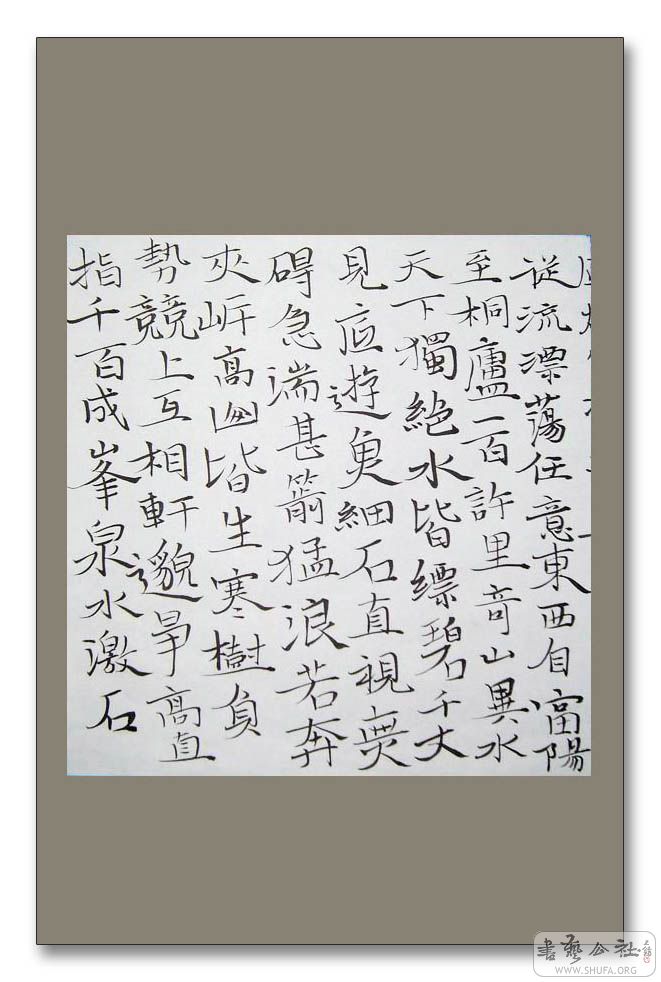 從流漂蕩任意東西自富陽
至桐廬一百許里奇山異水
天下獨絕水皆縹碧千丈
見底遊魚細石直視無
碍急湍甚箭猛浪若奔
夾岸高山皆生寒樹負
勢競上互相軒邈爭高直
指千百成峯泉水激石
書藝公社
WWW.SHUFA.ORG